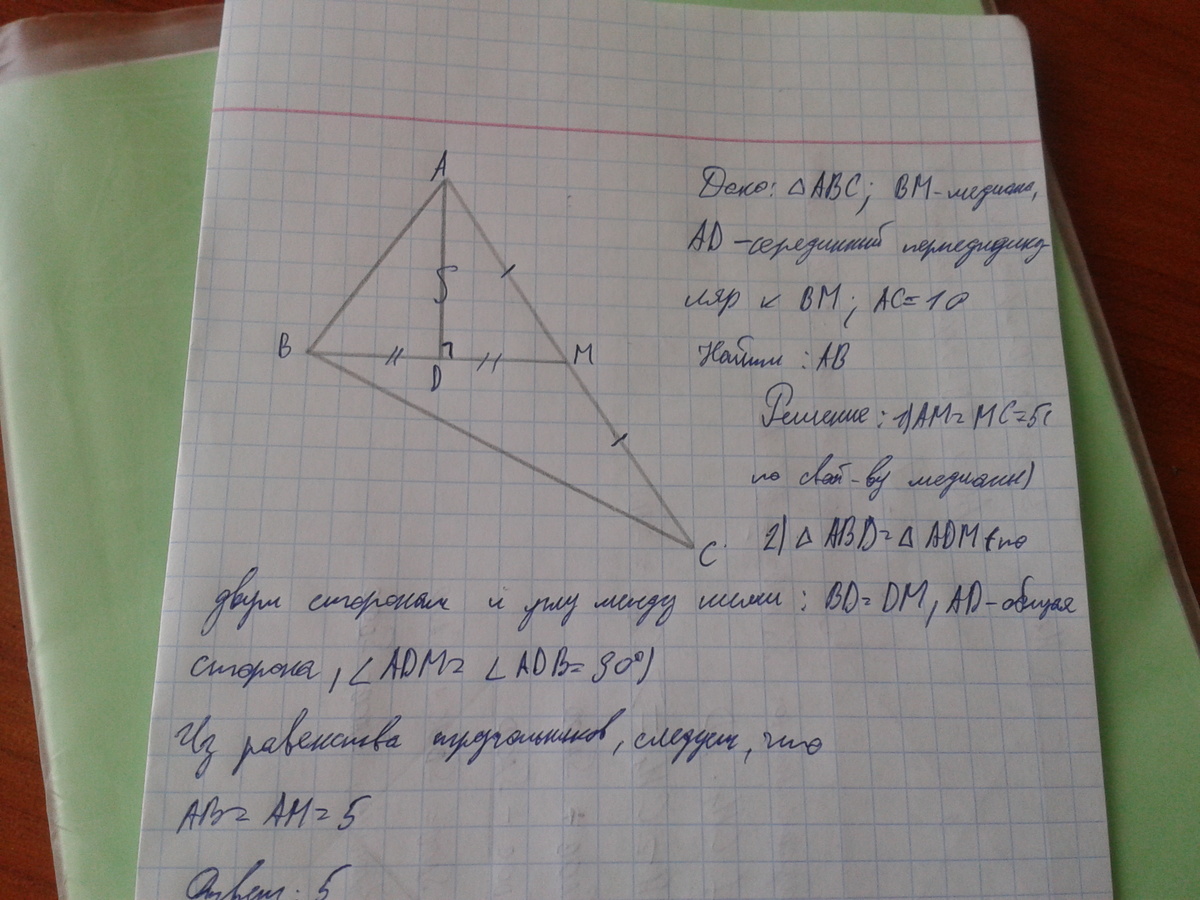 A
B
D
M
C
Дано: △ABC; BM-медиана,
AD-серединный перпендику-
ляр к BM; AC=10
Найти: AB
Решение: 1) AM=MC=5(
по свой-ву медианы)
2) △ABD=△ADM (по
двум сторонам и углу между ними: BD=DM, AD-общая
сторона, ∠ADM=∠ADB=90°)
Из равенства треугольников, следует, что
AB=AM=5
Ответ: 5